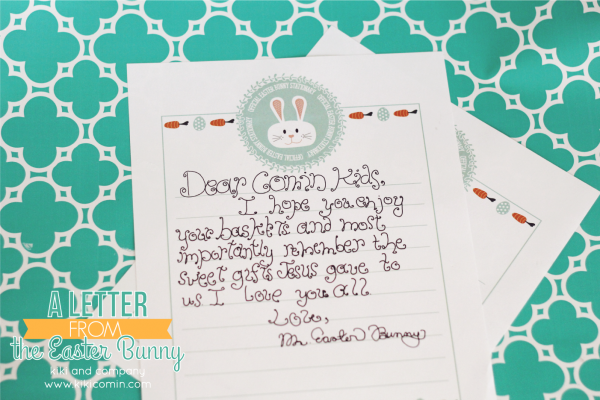 Dear Comin Kids,
I hope you enjoy
your baskets and most
importantly remember the
sweet gifts Jesus gave to
us. I love you all
Love,
Mr. Easter Bunny
A LETTER
FROM
the Easter Bunny
kiki and company
www.kikicomin.com